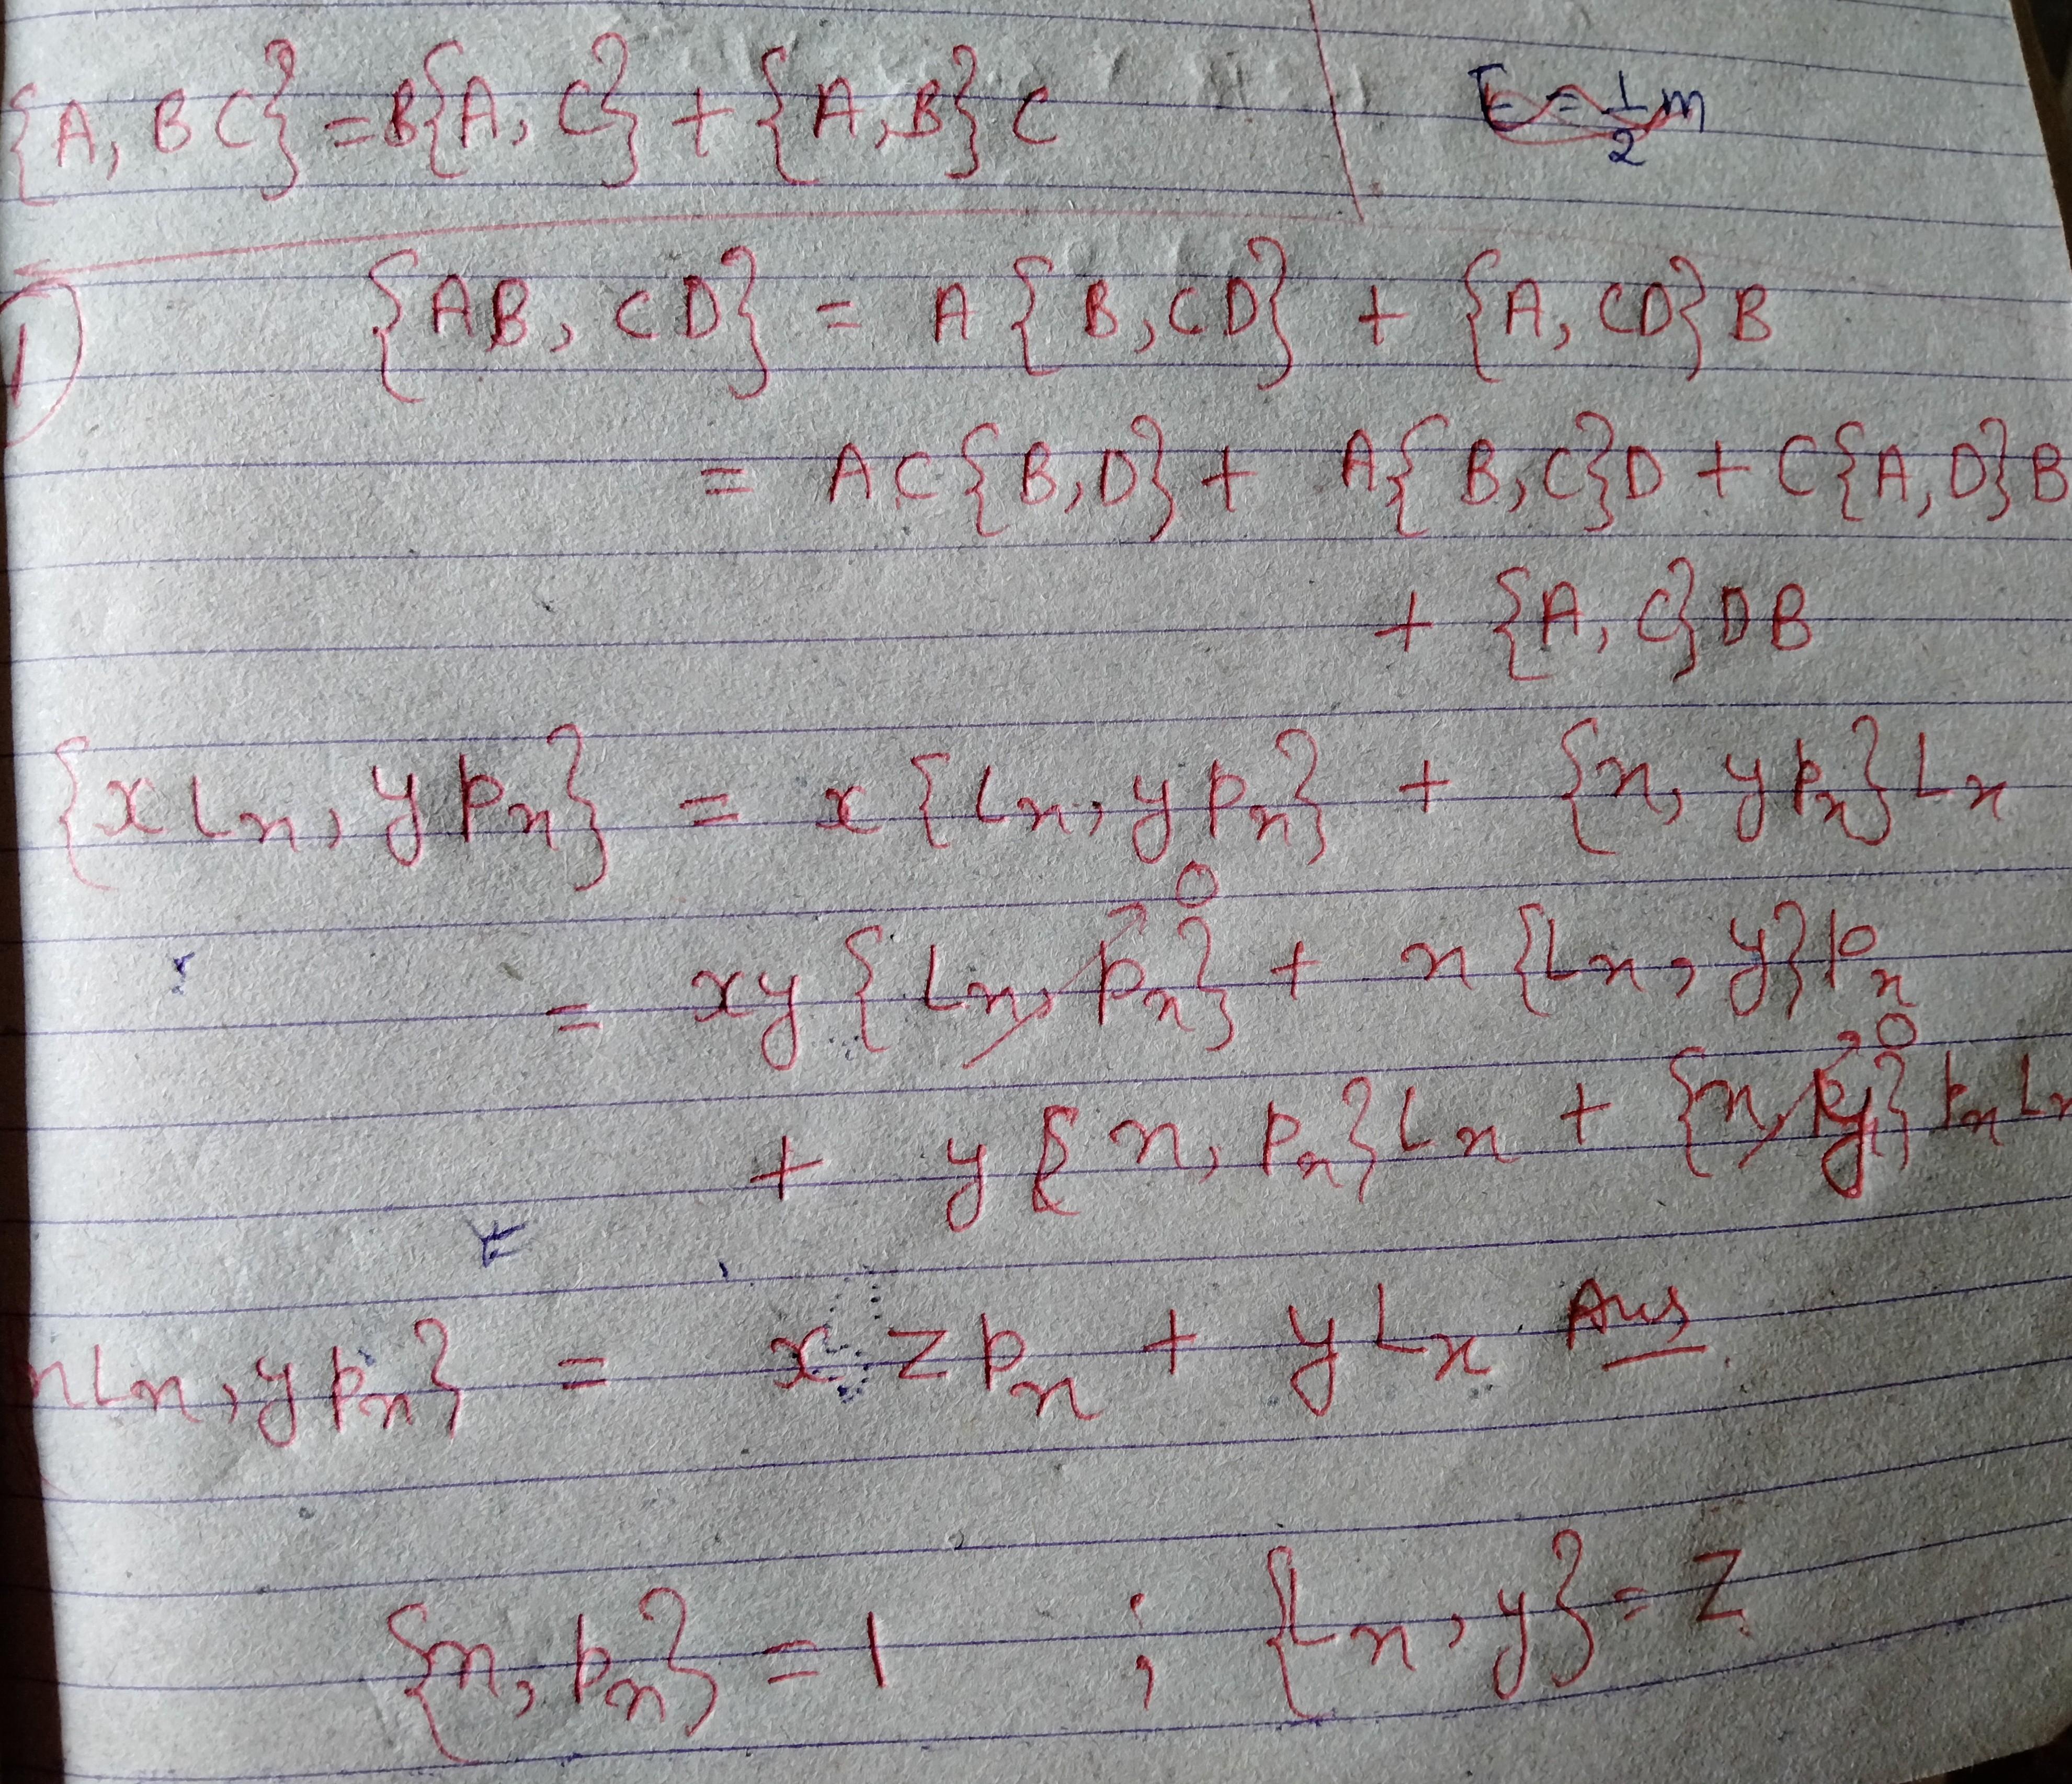 {A, BC} = B{A, C} + {A, B} C
E = 1/2 m
1) {AB, CD} = A {B, CD} + {A, CD} B
= AC {B, D} + A{B, C}D + C{A, D}B
+ {A, C} DB
{x Lx, y px} = x {Lx, y px} + {x, y px} Lx
= xy {Lx, px} → 0 + x {Lx, y} px
+ y {x, px} Lx + {x, y} → 0 px Lx
xLx, y px} = x z px + y Lx Ans
{x, px} = 1 ; {Lx, y} = Z